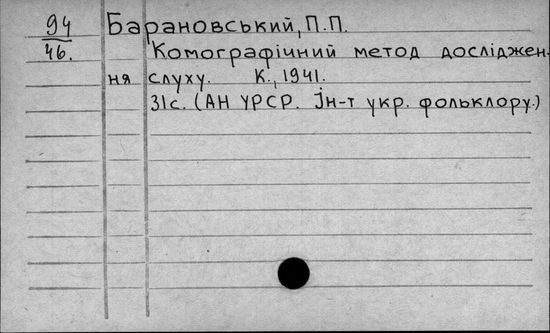 94
46.
Барановський, П.П.
Комографічний метод дослiджен-
ня слуху. К., 1941.
31с. (АН УРСР. Iн-т укр. фольклору.)